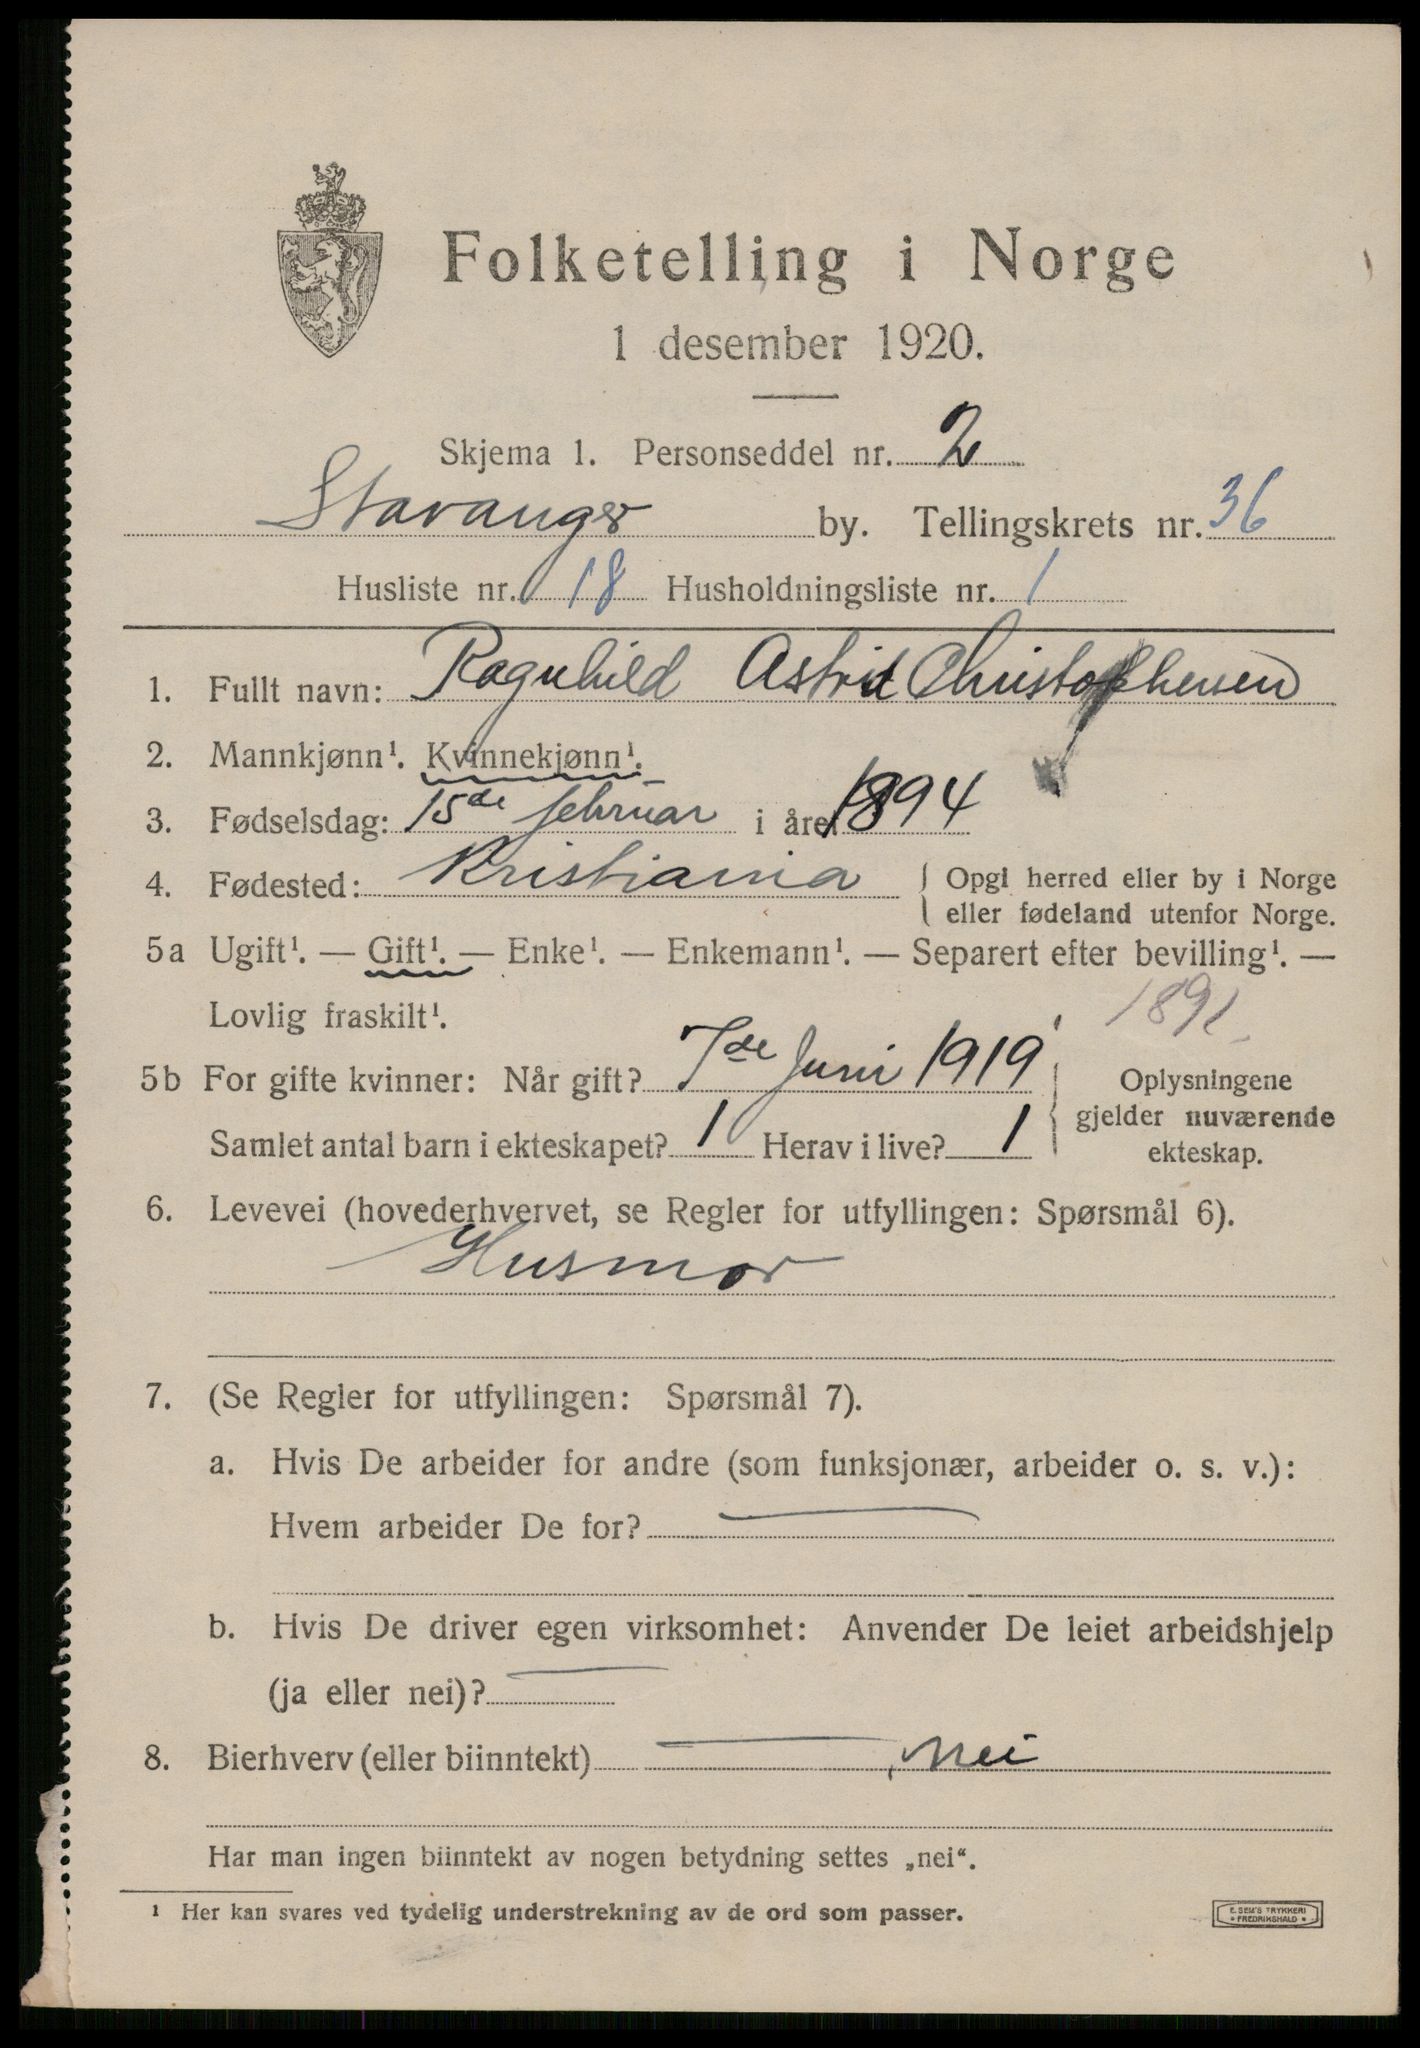 Folketelling i Norge
1 desember 1920.
Skjema 1. Personseddel nr. 2
Stavanger by. Tellingskrets nr. 36
Husliste nr. 18 Husholdningsliste nr. 1
1. Fullt navn: Ragnhild Astrid Christophersen
2. Mannkjønn¹. Kvinnekjønn¹.
3. Fødselsdag: 15de februar i året 1894
4. Fødested: Kristiania { Opgi herred eller by i Norge
eller fødeland utenfor Norge.
5a Ugift¹. — Gift¹. — Enke¹. — Enkemann¹. — Separert efter bevilling¹. —
Lovlig fraskilt¹.
5b For gifte kvinner: Når gift? 7de Juni 1919
Samlet antal barn i ekteskapet? 1 Herav i live? 1
Oplysningene
gjelder nuværende
ekteskap.
6. Levevei (hovederhvervet, se Regler for utfyllingen: Spørsmål 6).
Husmor
7. (Se Regler for utfyllingen: Spørsmål 7).
a. Hvis De arbeider for andre (som funksjonær, arbeider o. s. v.):
Hvem arbeider De for? —
b. Hvis De driver egen virksomhet: Anvender De leiet arbeidshjelp
(ja eller nei)? —
8. Bierhverv (eller biinntekt) — nei
Har man ingen biinntekt av nogen betydning settes „nei“.
¹ Her kan svares ved tydelig understrekning av de ord som passer.
E. SEM'S TRYKKERI
• FREDRIKSHALD •